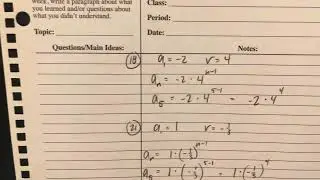 week, write a paragraph about what
you learned and/or questions about
what you didn't understand.
Class:
Period:
Topic:
Date:
Questions/Main Ideas:
Notes:
(18) a₁ = -2 r = 4
aₙ = -2 · 4ⁿ⁻¹
a₅ = -2 · 4⁵⁻¹ = -2 · 4⁴
(21) a₁ = 1 r = -1/3
aₙ = 1 · (-1/3)ⁿ⁻¹
a₅ = 1 · (-1/3)⁵⁻¹ = 1 · (-1/3)⁴